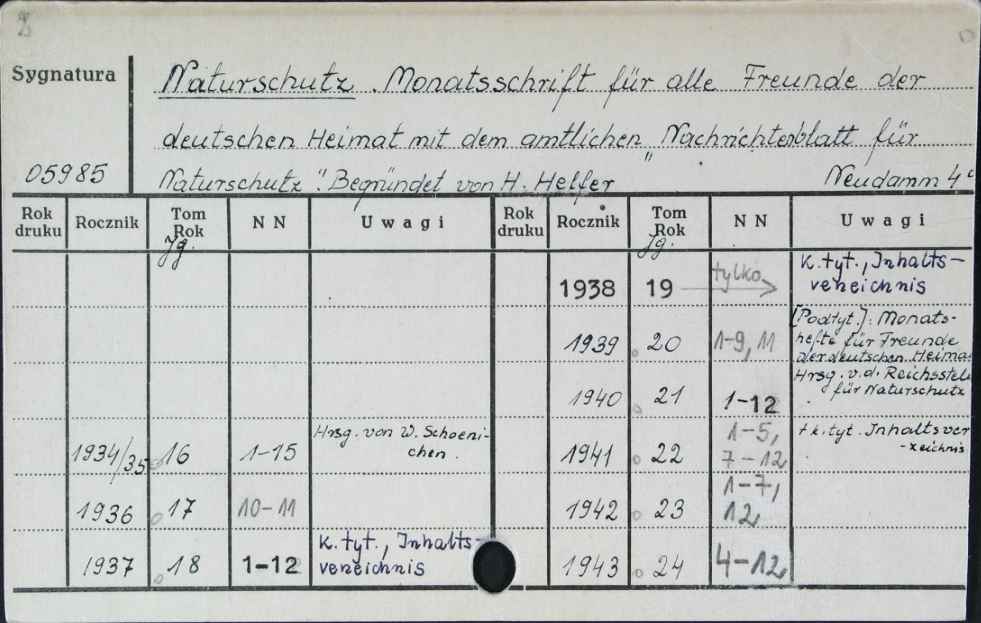 Sygnatura
Naturschutz. Monatsschrift für alle Freunde der
deutschen Heimat mit dem amtlichen „Nachrichtenblatt für
05985 Naturschutz". Begründet von H. Helfer Neudamm 4°
Rok druku Rocznik Tom Rok N N Uwagi Rok druku Rocznik Tom Rok N N Uwagi
Jg. Jg.
1938 19 tylko k. tyt., Inhalts-
verzeichnis
1939 20 1-9, 11 [Podtyt.]: Monats-
hefte für Freunde
der deutschen Heimat
1940 21 1-12 Hrsg. v. d. Reichsstelle
für Naturschutz
1934/35 16 1-15 Hrsg. von W. Schoeni-
chen.
1941 22 1-5,
7-12 + k. tyt. Inhaltsver
-zeichnis
1936 17 10-11
1942 23 1-7,
12,
1937 18 1-12 k. tyt., Inhalts-
verzeichnis
1943 24 4-12,